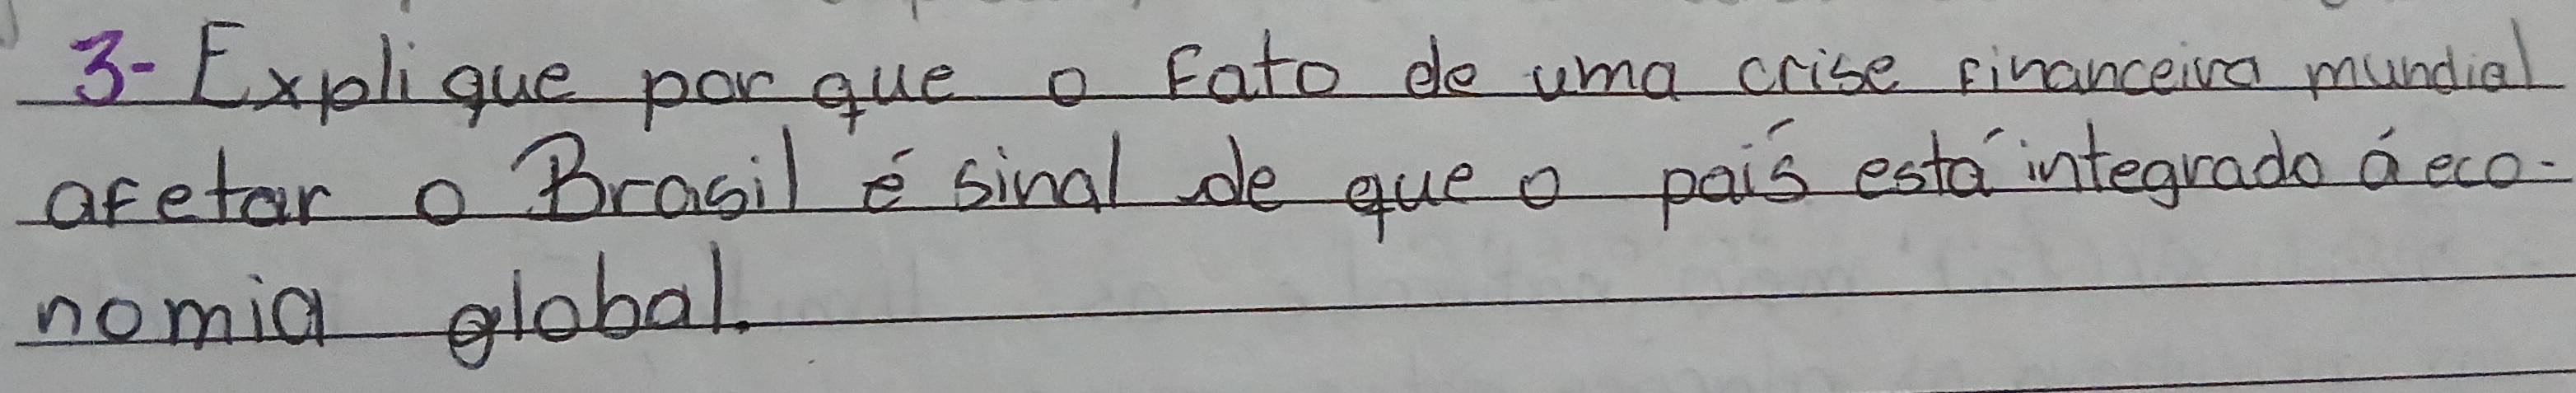 3- Explique por que o fato de uma crise financeira mundial
afetar o Brasil é sinal de que o país está integrado á eco-
nomia global.